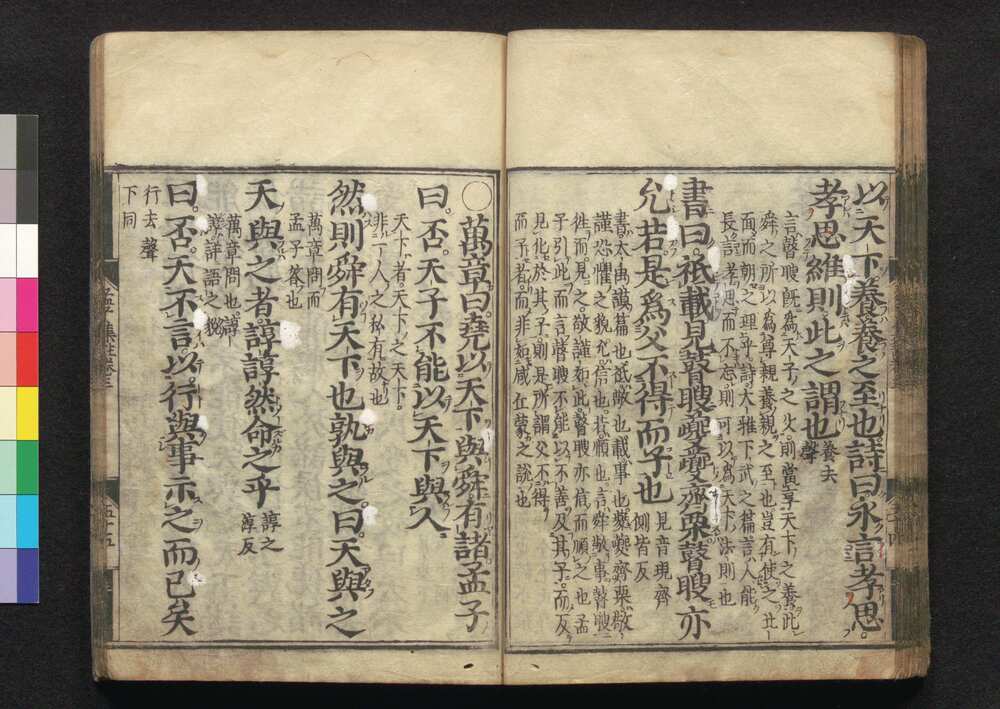 以天下養養之至也詩曰永言孝思
孝思維則此之謂也養去
聲
言瞽瞍既爲天子之父則當享天下之養此
舜之所以爲尊親養親之至也豈有使之北
面而朝之理乎詩大雅下武之篇言人能
長言孝思而不忘則可以爲天下法則也
書曰祇載見瞽瞍夔夔齊栗瞽瞍亦
允若是爲父不得而子也見音現齊
側皆反
書大禹謨篇也祇敬也載事也夔夔齊栗敬
謹恐懼之貌允信也若順也言舜敬事瞽瞍
徃而見之敬謹如此瞽瞍亦信而順之也孟
子引此而言瞽瞍不能以不善及其子而反
見化於其子則是所謂父不得
而子者而非如咸丘蒙之說也
○萬章曰堯以天下與舜有諸孟子
曰否天子不能以天下與人
天下者天下之天下
非一人之私有故也
然則舜有天下也孰與之曰天與之
萬章問而
孟子答也
天與之者諄諄然命之乎諄之
淳反
萬章問也諄
諄詳語之貌
曰否天不言以行與事示之而已矣
行去聲
下同